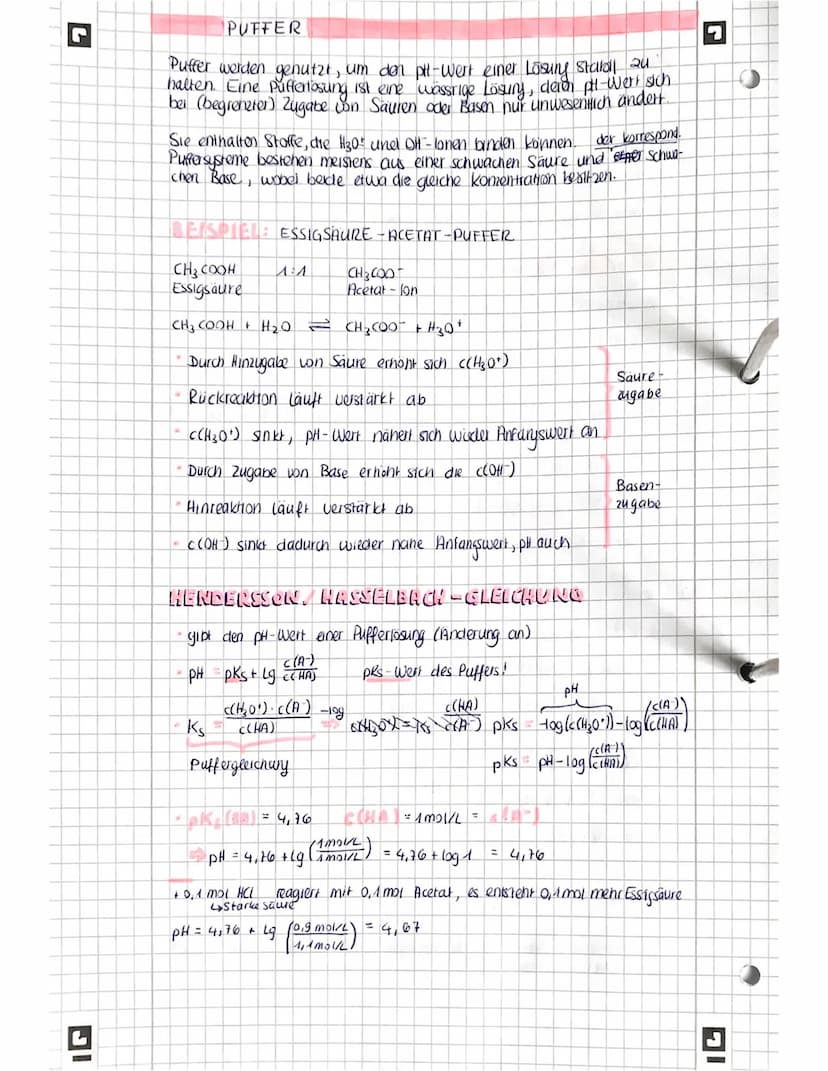 PUFFER
Puffer werden genutzt, um den pH-Wert einer Lösung stabil zu
halten. Eine Pufferlösung ist eine wässrige Lösung, deren pH-Wert sich
bei (begrenzter) Zugabe von Säuren oder Basen nur unwesentlich ändert.
Sie enthalten Stoffe, die H₃O⁺ und OH⁻-Ionen binden können. der korrespond.
Puffersysteme bestehen meistens aus einer schwachen Säure und schwa-
chen Base, wobei beide etwa die gleiche Konzentration besitzen.
BEISPIEL: ESSIGSÄURE-ACETAT-PUFFER
CH₃COOH 1:1 CH₃COO⁻
Essigsäure Acetat-Ion
CH₃COOH + H₂O ⇌ CH₃COO⁻ + H₃O⁺
• Durch Hinzugabe von Säure erhöht sich c(H₃O⁺)
• Rückreaktion läuft verstärkt ab
• c(H₃O⁺) sinkt, pH-Wert nähert sich wieder Anfangswert an
Säure-
zugabe
• Durch Zugabe von Base erhöht sich die c(OH⁻)
• Hinreaktion läuft verstärkt ab
• c(OH⁻) sinkt dadurch wieder nahe Anfangswert, pH auch
Basen-
zugabe
HENDERSSON/HASSELBACH-GLEICHUNG
• gibt den pH-Wert einer Pufferlösung (Änderung an)
• pH = pKs + lg c(A⁻)/c(HA) pKs-Wert des Puffers!
• Ks = c(H₃O⁺)·c(A⁻)/c(HA) -log ⇒ c(H₃O⁺) = Ks · c(HA)/c(A⁻) pKs = -log(c(H₃O⁺)) - log(c(A⁻)/c(HA))
pH
Puffergleichung
pKs = pH - log(c(A⁻)/c(HA))
• pKs (HA) = 4,76 c(HA) = 1mol/L = c(A⁻)
⇒ pH = 4,76 + lg (1mol/L / 1mol/L) = 4,76 + log 1 = 4,76
+ 0,1 mol HCl reagiert mit 0,1 mol Acetat, es entsteht 0,1 mol mehr Essigsäure
↳ starke Säure
pH = 4,76 + lg (0,9 mol/L / 1,1 mol/L) = 4,67